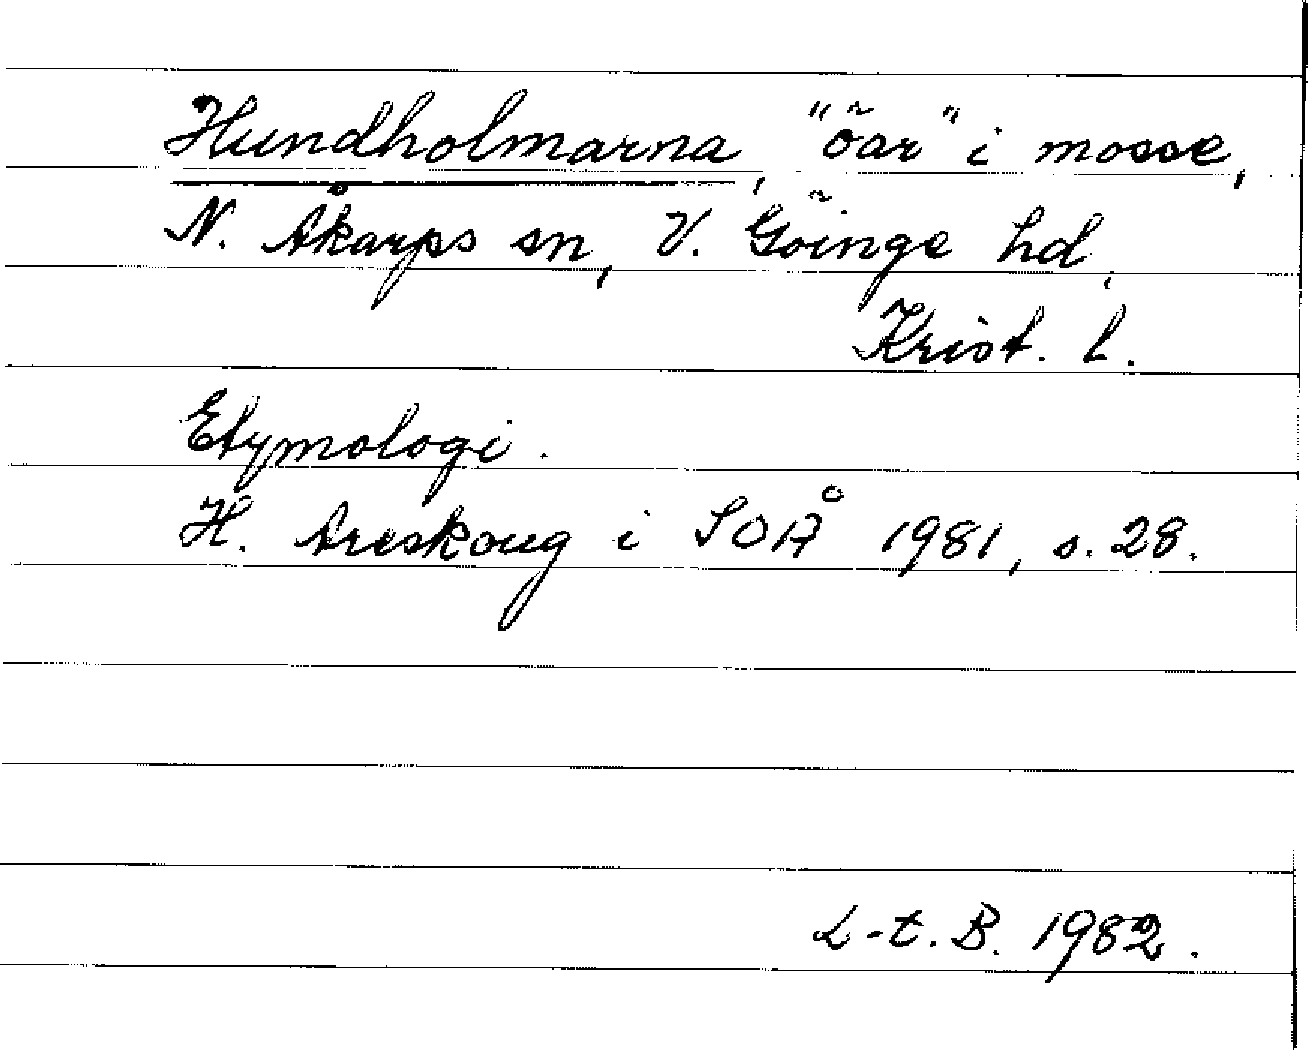 Hundholmarna, "öar" i mosse,
N. Åkarps sn, V. Göinge hd,
Krist. l.
Etymologi.
H. Areskoug i SOÅ 1981, s. 28.
L-t. B. 1982.